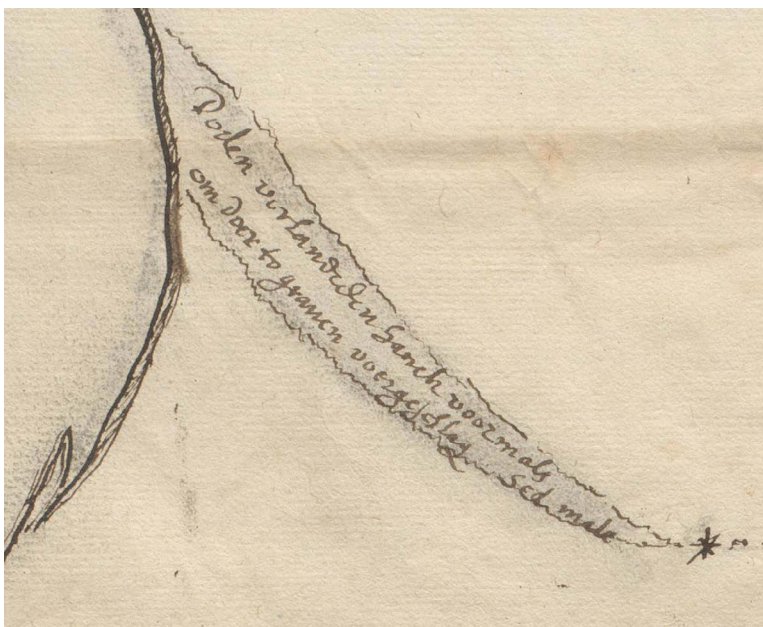 Poden verlandeden Sanck voormals
om door to graven voergeslag
Sed male